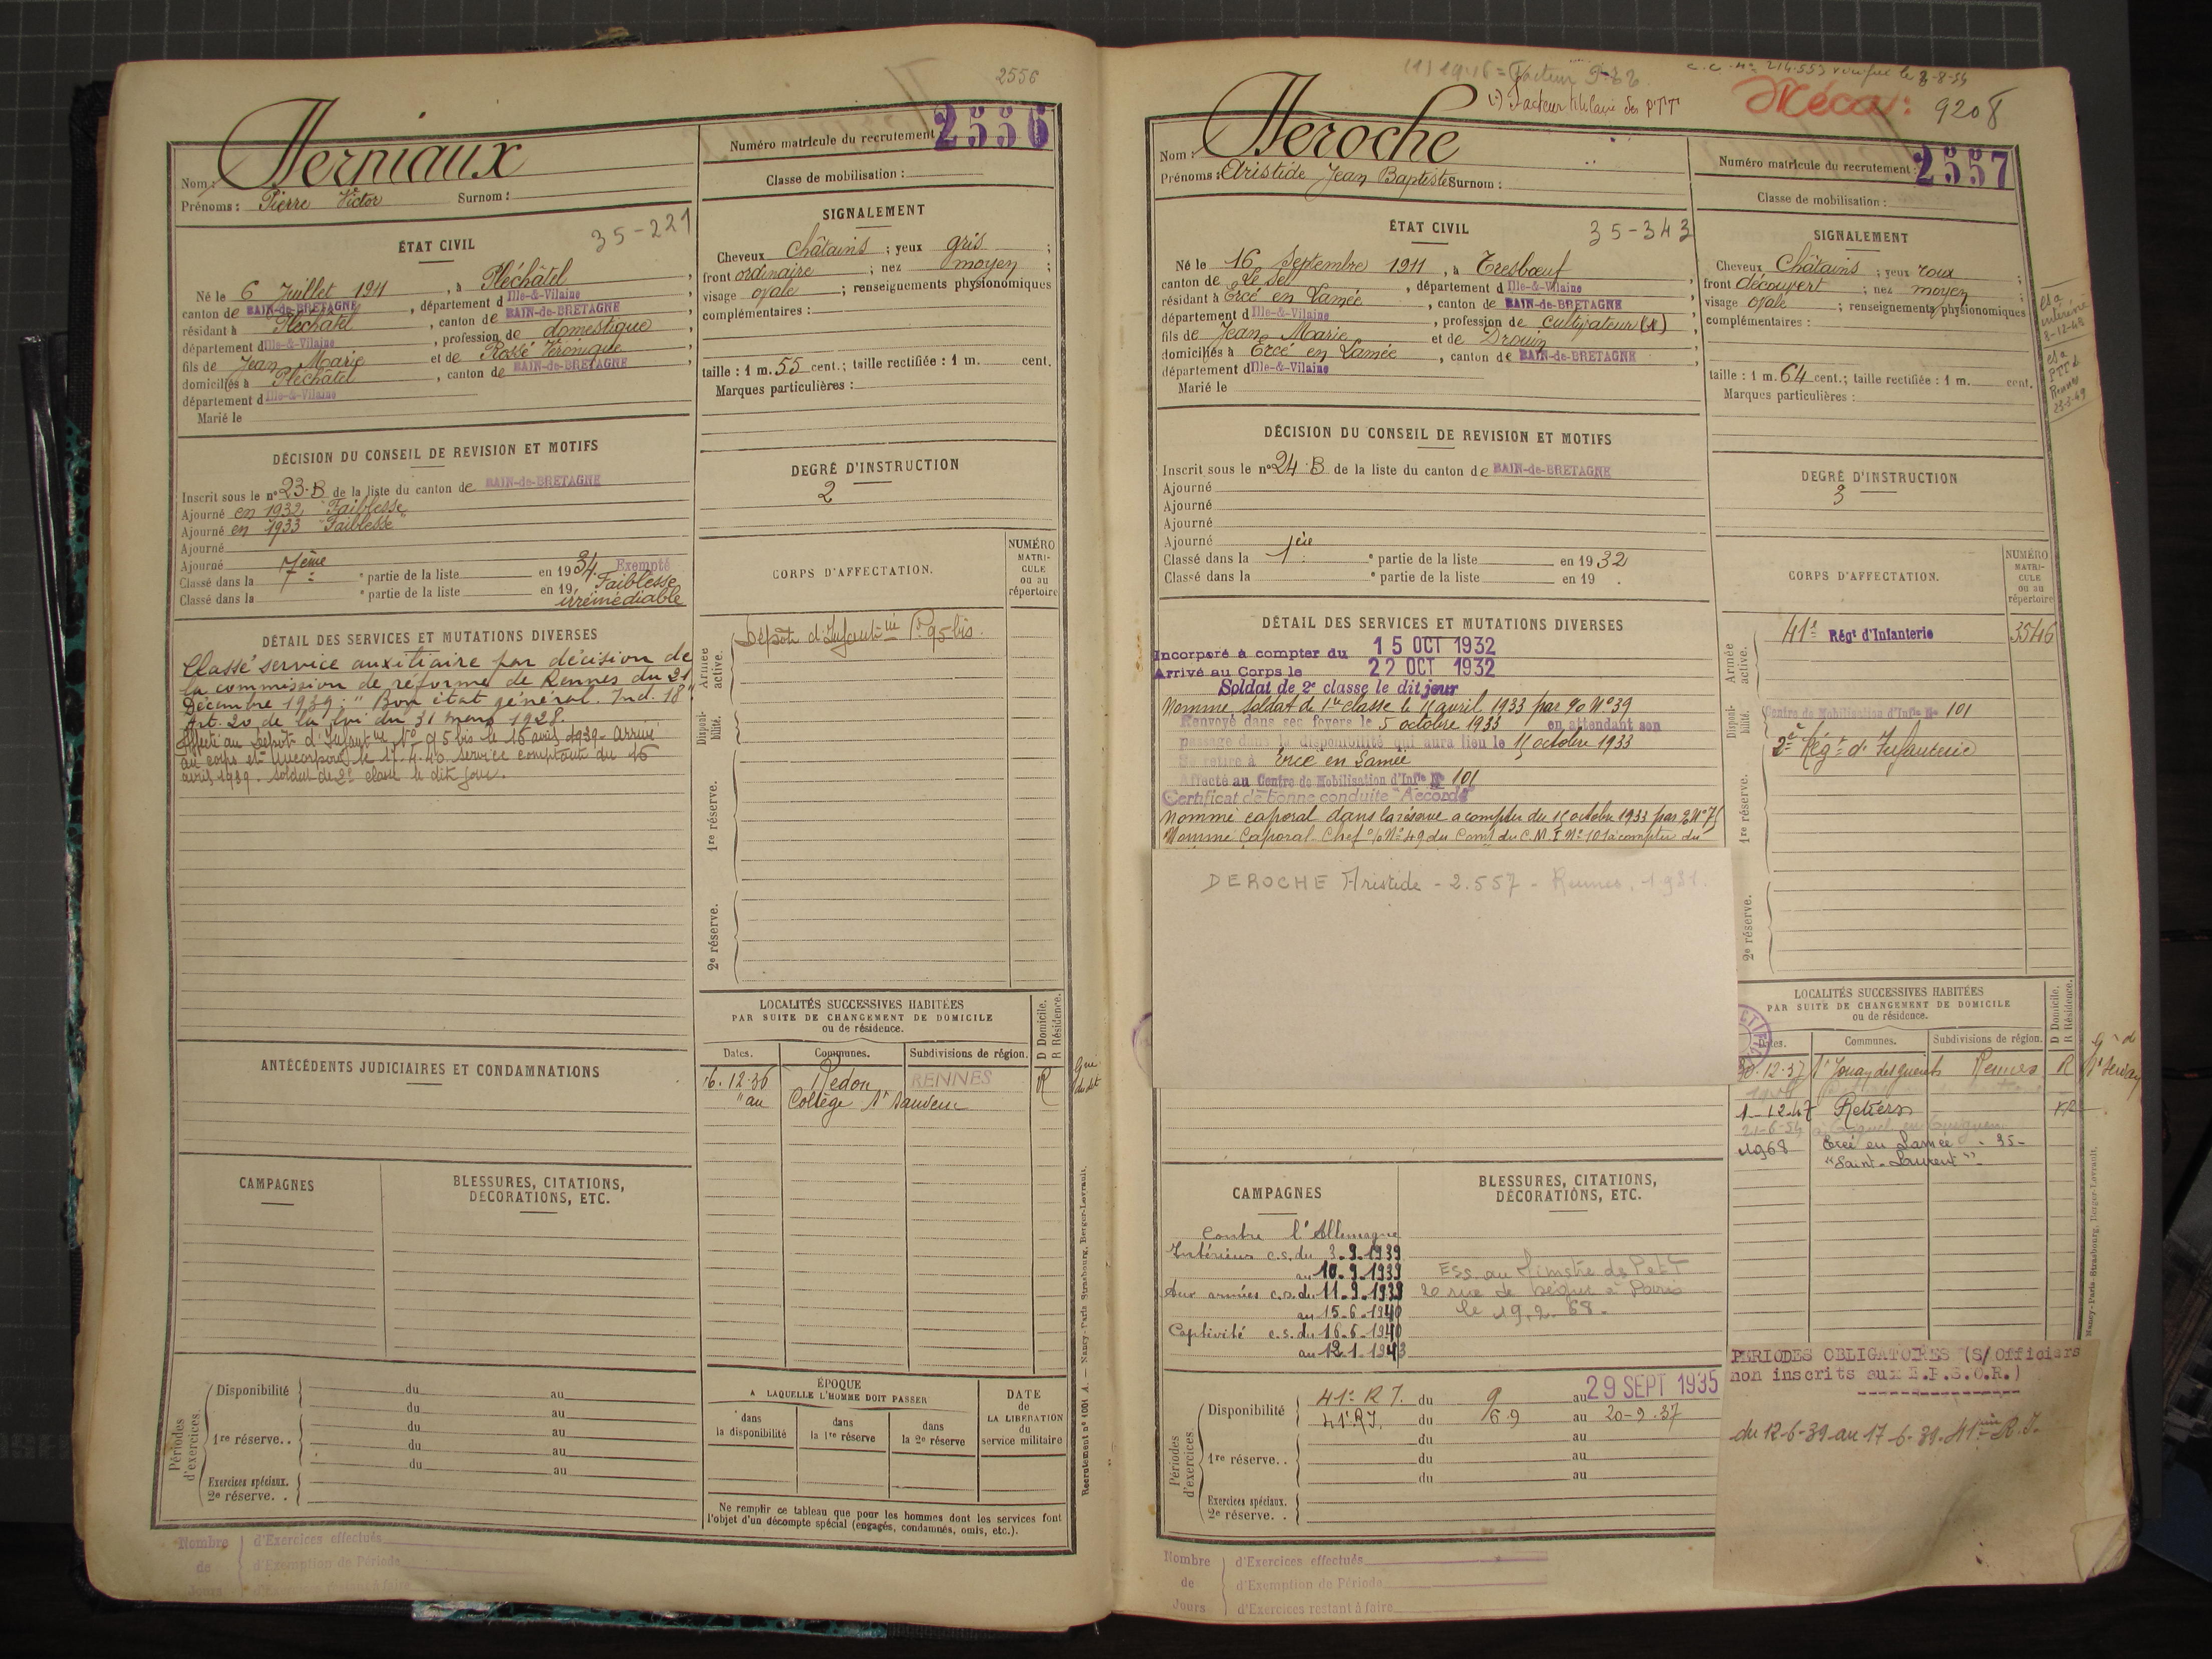 2556
Derniaux
Nom :
Prénoms : Pierre Victor Surnom :
Numéro matricule du recrutement : 2556
Classe de mobilisation :
ÉTAT CIVIL
35-221
Né le 6 Juillet 1911, à Pléchâtel,
canton de BAIN-de-BRETAGNE, département d Ille-&-Vilaine,
résidant à Pléchâtel, canton de BAIN-de-BRETAGNE,
département d Ille-&-Vilaine, profession de domestique,
fils de Jean Marie et de Rossé Véronique
domiciliés à Pléchâtel, canton de BAIN-de-BRETAGNE,
département d Ille-&-Vilaine
Marié le
SIGNALEMENT
Cheveux Châtains ; yeux gris ;
front ordinaire ; nez moyen ;
visage ovale ; renseignements physionomiques
complémentaires :
taille : 1 m. 55 cent.; taille rectifiée : 1 m. cent.
Marques particulières :
DÉCISION DU CONSEIL DE REVISION ET MOTIFS
Inscrit sous le n° 23-B de la liste du canton de BAIN-de-BRETAGNE
Ajourné en 1932 Faiblesse
Ajourné en 1933 Faiblesse
Ajourné
Ajourné
Classé dans la 7ème e partie de la liste en 1934 Exempté
Classé dans la e partie de la liste en 19 Faiblesse
irrémédiable
DEGRÉ D'INSTRUCTION
2
CORPS D'AFFECTATION.
NUMÉRO MATRI-CULE ou au répertoire
DÉTAIL DES SERVICES ET MUTATIONS DIVERSES
Classé service auxiliaire par décision de
la commission de réforme de Rennes du 21
Décembre 1939 : "Bon état général. Ind. 18"
Art. 20 de la loi du 31 mars 1928.
Affecté au Dépôt d'Infantrie N° 95 bis le 16 avril 1939. Arrivé
au corps et incorporé le 17.4.40. service comptant du 16
avril 1939. Soldat de 2e classe le dit jour.
Armée active.
Dépôt d'Infantrie N° 95 bis.
Disponibilité.
1re réserve.
2e réserve.
ANTÉCÉDENTS JUDICIAIRES ET CONDAMNATIONS
LOCALITÉS SUCCESSIVES HABITÉES
PAR SUITE DE CHANGEMENT DE DOMICILE
ou de résidence.
D Domicile.
R Résidence.
Dates. Communes. Subdivisions de région.
6.12.36 Redon RENNES R
"au Collège St Sauveur
CAMPAGNES
BLESSURES, CITATIONS,
DÉCORATIONS, ETC.
Périodes d'exercices.
Disponibilité du au
du au
1re réserve. . du au
du au
du au
Exercices spéciaux.
2e réserve. .
ÉPOQUE
A LAQUELLE L'HOMME DOIT PASSER
dans la disponibilité
dans la 1re réserve
dans la 2e réserve
DATE
de
LA LIBÉRATION
du
service militaire
Ne remplir ce tableau que pour les hommes dont les services font
l'objet d'un décompte spécial (engagés, condamnés, omis, etc.).
Recrutement n° 1001 A. — Nancy-Paris-Strasbourg, Berger-Levrault.
Nombre de Jours
d'Exercices effectués
d'Exemption de Période
d'Exercices restant à faire
(1) Facteur titulaire des PTT
9208
Deroche
Nom :
Prénoms : Aristide Jean Baptiste Surnom :
Numéro matricule du recrutement : 2557
Classe de mobilisation :
ÉTAT CIVIL
35-343
Né le 16 Septembre 1911, à Tresbœuf
canton de Le Sel, département d Ille-&-Vilaine
résidant à Ercé en Lamée, canton de BAIN-de-BRETAGNE
département d Ille-&-Vilaine, profession de cultivateur (1)
fils de Jean Marie et de Drouin
domiciliés à Ercé en Lamée, canton de BAIN-de-BRETAGNE
département d Ille-&-Vilaine
Marié le
SIGNALEMENT
Cheveux Châtains ; yeux roux ;
front découvert ; nez moyen ;
visage ovale ; renseignements physionomiques
complémentaires :
taille : 1 m. 64 cent.; taille rectifiée : 1 m. cent.
Marques particulières :
DÉCISION DU CONSEIL DE REVISION ET MOTIFS
Inscrit sous le n° 24-B de la liste du canton de BAIN-de-BRETAGNE
Ajourné
Ajourné
Ajourné
Ajourné
Classé dans la 1ère e partie de la liste en 1932
Classé dans la e partie de la liste en 19 .
DEGRÉ D'INSTRUCTION
3
CORPS D'AFFECTATION.
NUMÉRO MATRI-CULE ou au répertoire
DÉTAIL DES SERVICES ET MUTATIONS DIVERSES
Incorporé à compter du 15 OCT 1932
Arrivé au Corps le 22 OCT 1932
Soldat de 2e classe le dit jour
Nommé soldat de 1re classe le 11 avril 1933 par 90 N° 39
Renvoyé dans ses foyers le 5 octobre 1933 en attendant son
passage dans la disponibilité qui aura lieu le 15 octobre 1933
Se retire à Ercé en Lamée
Affecté au Centre de Mobilisation d'Infie N° 101
Certificat de bonne conduite "Accordé"
Nommé caporal dans la réserve a compter du 15 octobre 1933
Nommé Caporal-Chef % N° 49 du Comt du C.M.I N° 101 à compter du
Armée active.
41e Régt d'Infanterie 3546
Disponibilité.
Centre de Mobilisation d'Infie N° 101
1re réserve.
2e Régt d'Infanterie
2e réserve.
DEROCHE Aristide - 2.557 - Rennes, 1931.
LOCALITÉS SUCCESSIVES HABITÉES
PAR SUITE DE CHANGEMENT DE DOMICILE
ou de résidence.
D Domicile.
R Résidence.
Dates. Communes. Subdivisions de région.
30.12.37 St Jouan des guérets Rennes R
1-12.47 Retiers
21-6-54
1968 Ercé en Lamée - 35-
"Saint-Laurent"
CAMPAGNES
Contre l'Allemagne
Intérieur c.s. du 3.9.1939
au 10.9.1939
Aux armées c.s. du 11.9.1939
au 15.6.1940
Captivité c.s. du 16.6.1940
au 12.1.1943
BLESSURES, CITATIONS,
DÉCORATIONS, ETC.
Ess. au Ministre des PetT
20 rue de Ségur à Paris
le 19.2.68.
PERIODES OBLIGATOIRES (S/Officiers
non inscrits aux E.P.S.O.R.)
du 12-6-39 au 17-6-39. 41ème R.I.
Périodes d'exercices.
Disponibilité 41e RI. du 9 au 29 SEPT 1935
41e RI. du 6.9 au 20-9.37
du au
1re réserve. . du au
du au
Exercices spéciaux.
2e réserve. .
Nancy-Paris-Strasbourg, Berger-Levrault.
Nombre de Jours
d'Exercices effectués
d'Exemption de Période
d'Exercices restant à faire